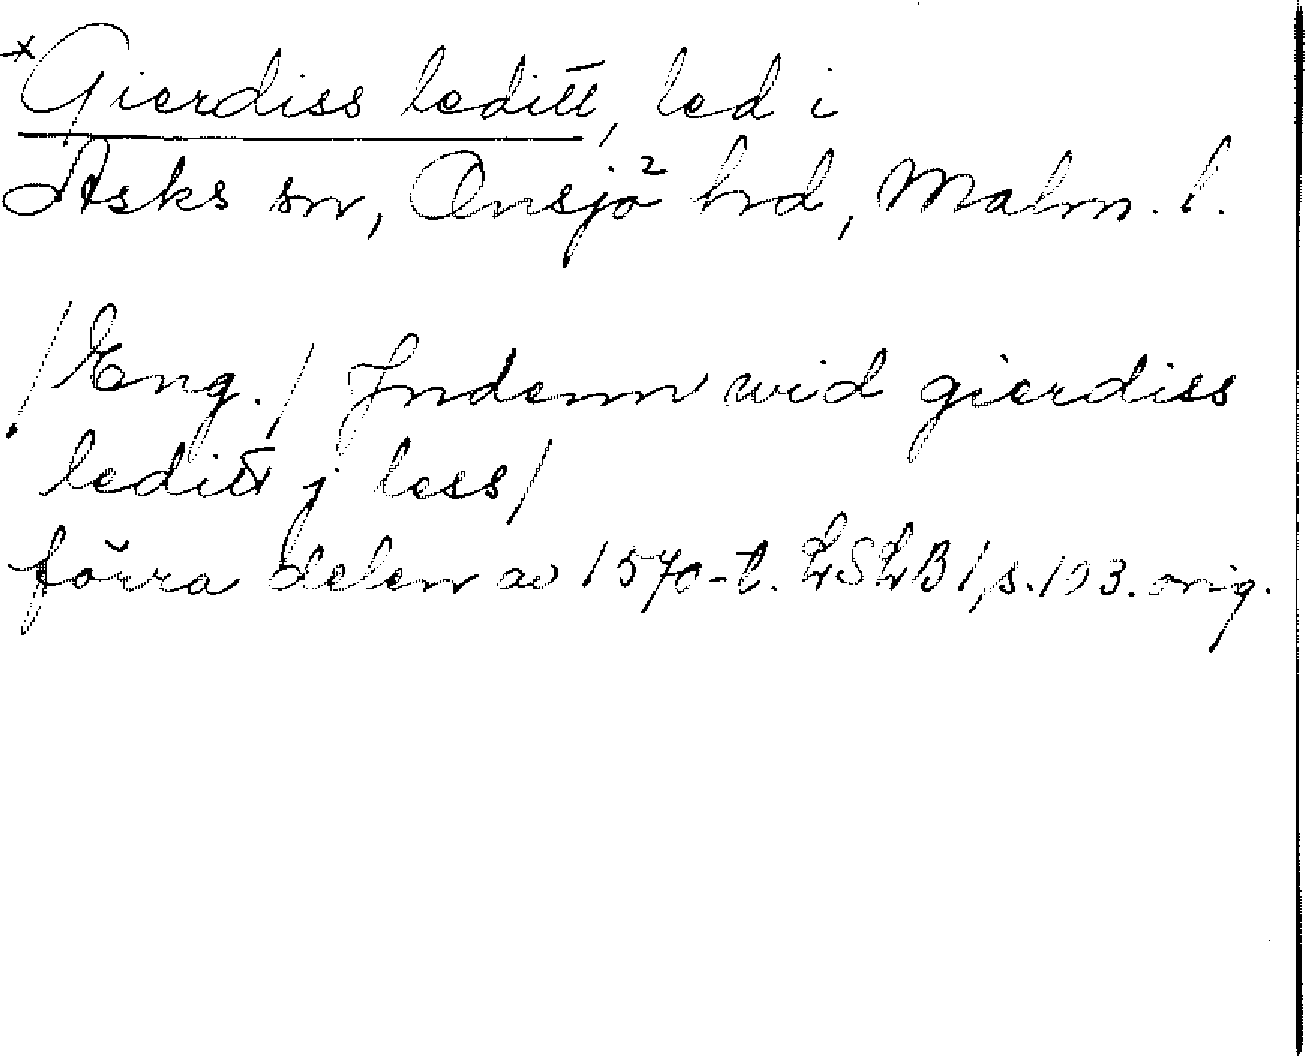 *Gierdiss leditt, led i
Asks sn, Onsjö hrd, Malm. l.
/Eng./ Indenn wid gierdiss
leditt j less/
förra delen av 1570-t. LSLB 1, s. 193. orig.